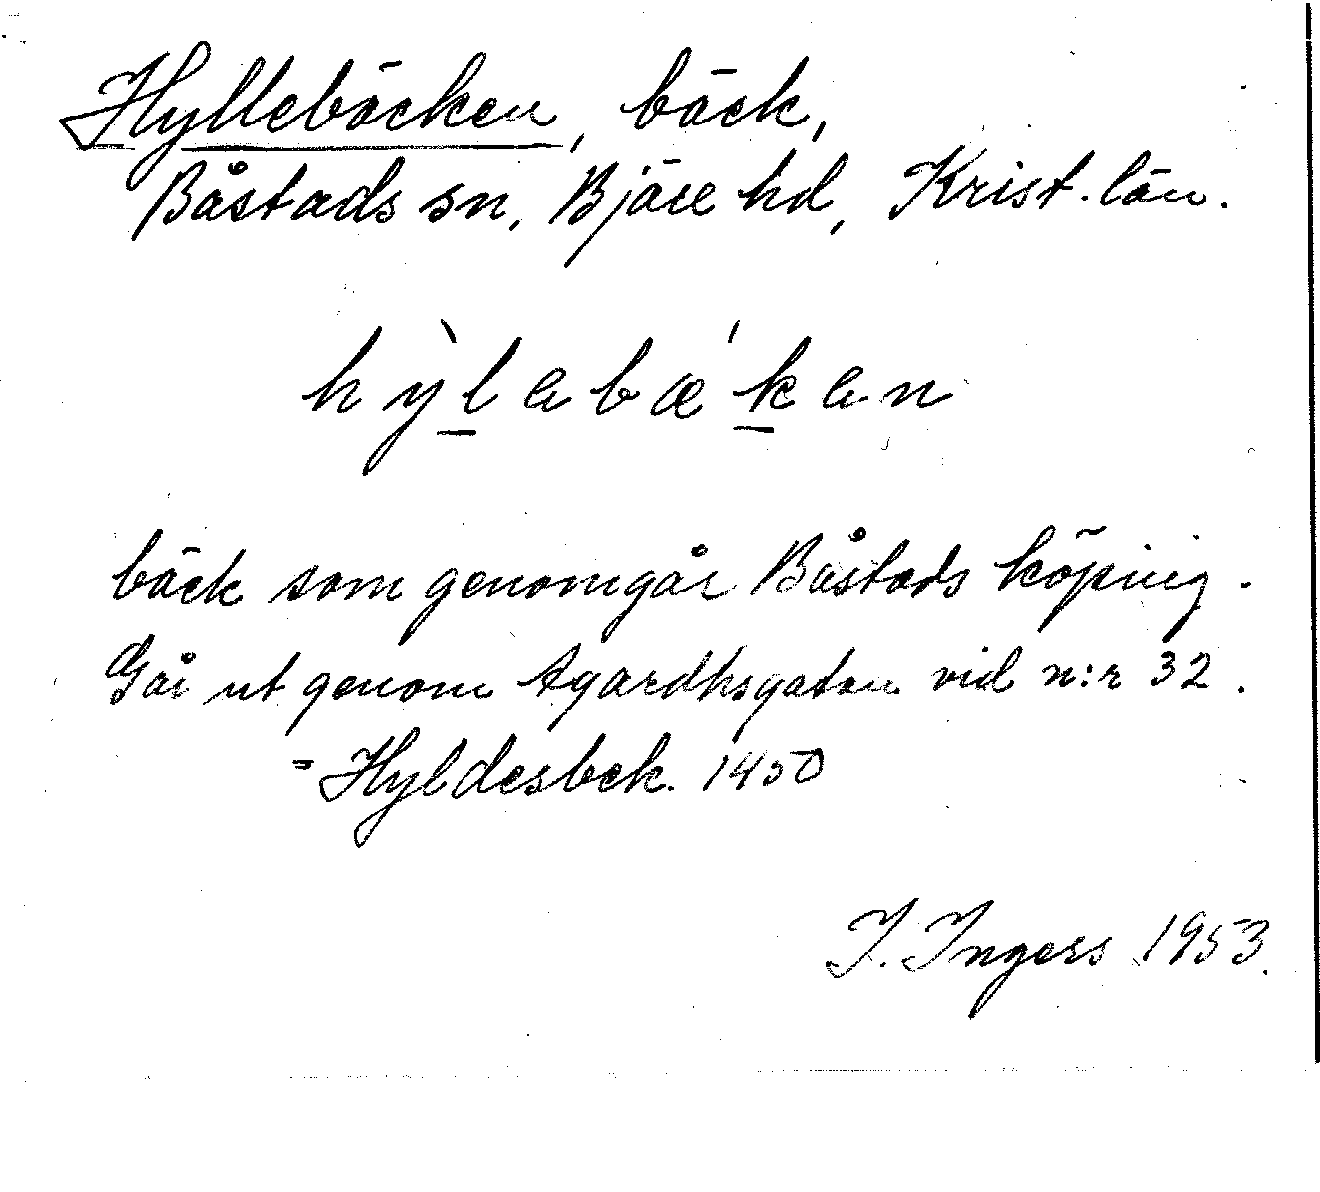 Hyllebäcken, bäck,
Båstads sn, Bjäre hd, Krist. län.
hỳl̲ebæ'k̲en
bäck som genomgår Båstads köping.
Går ut genom Agardhsgatan vid n:r 32.
= Hyldesbek. 1450
I. Ingers 1953.